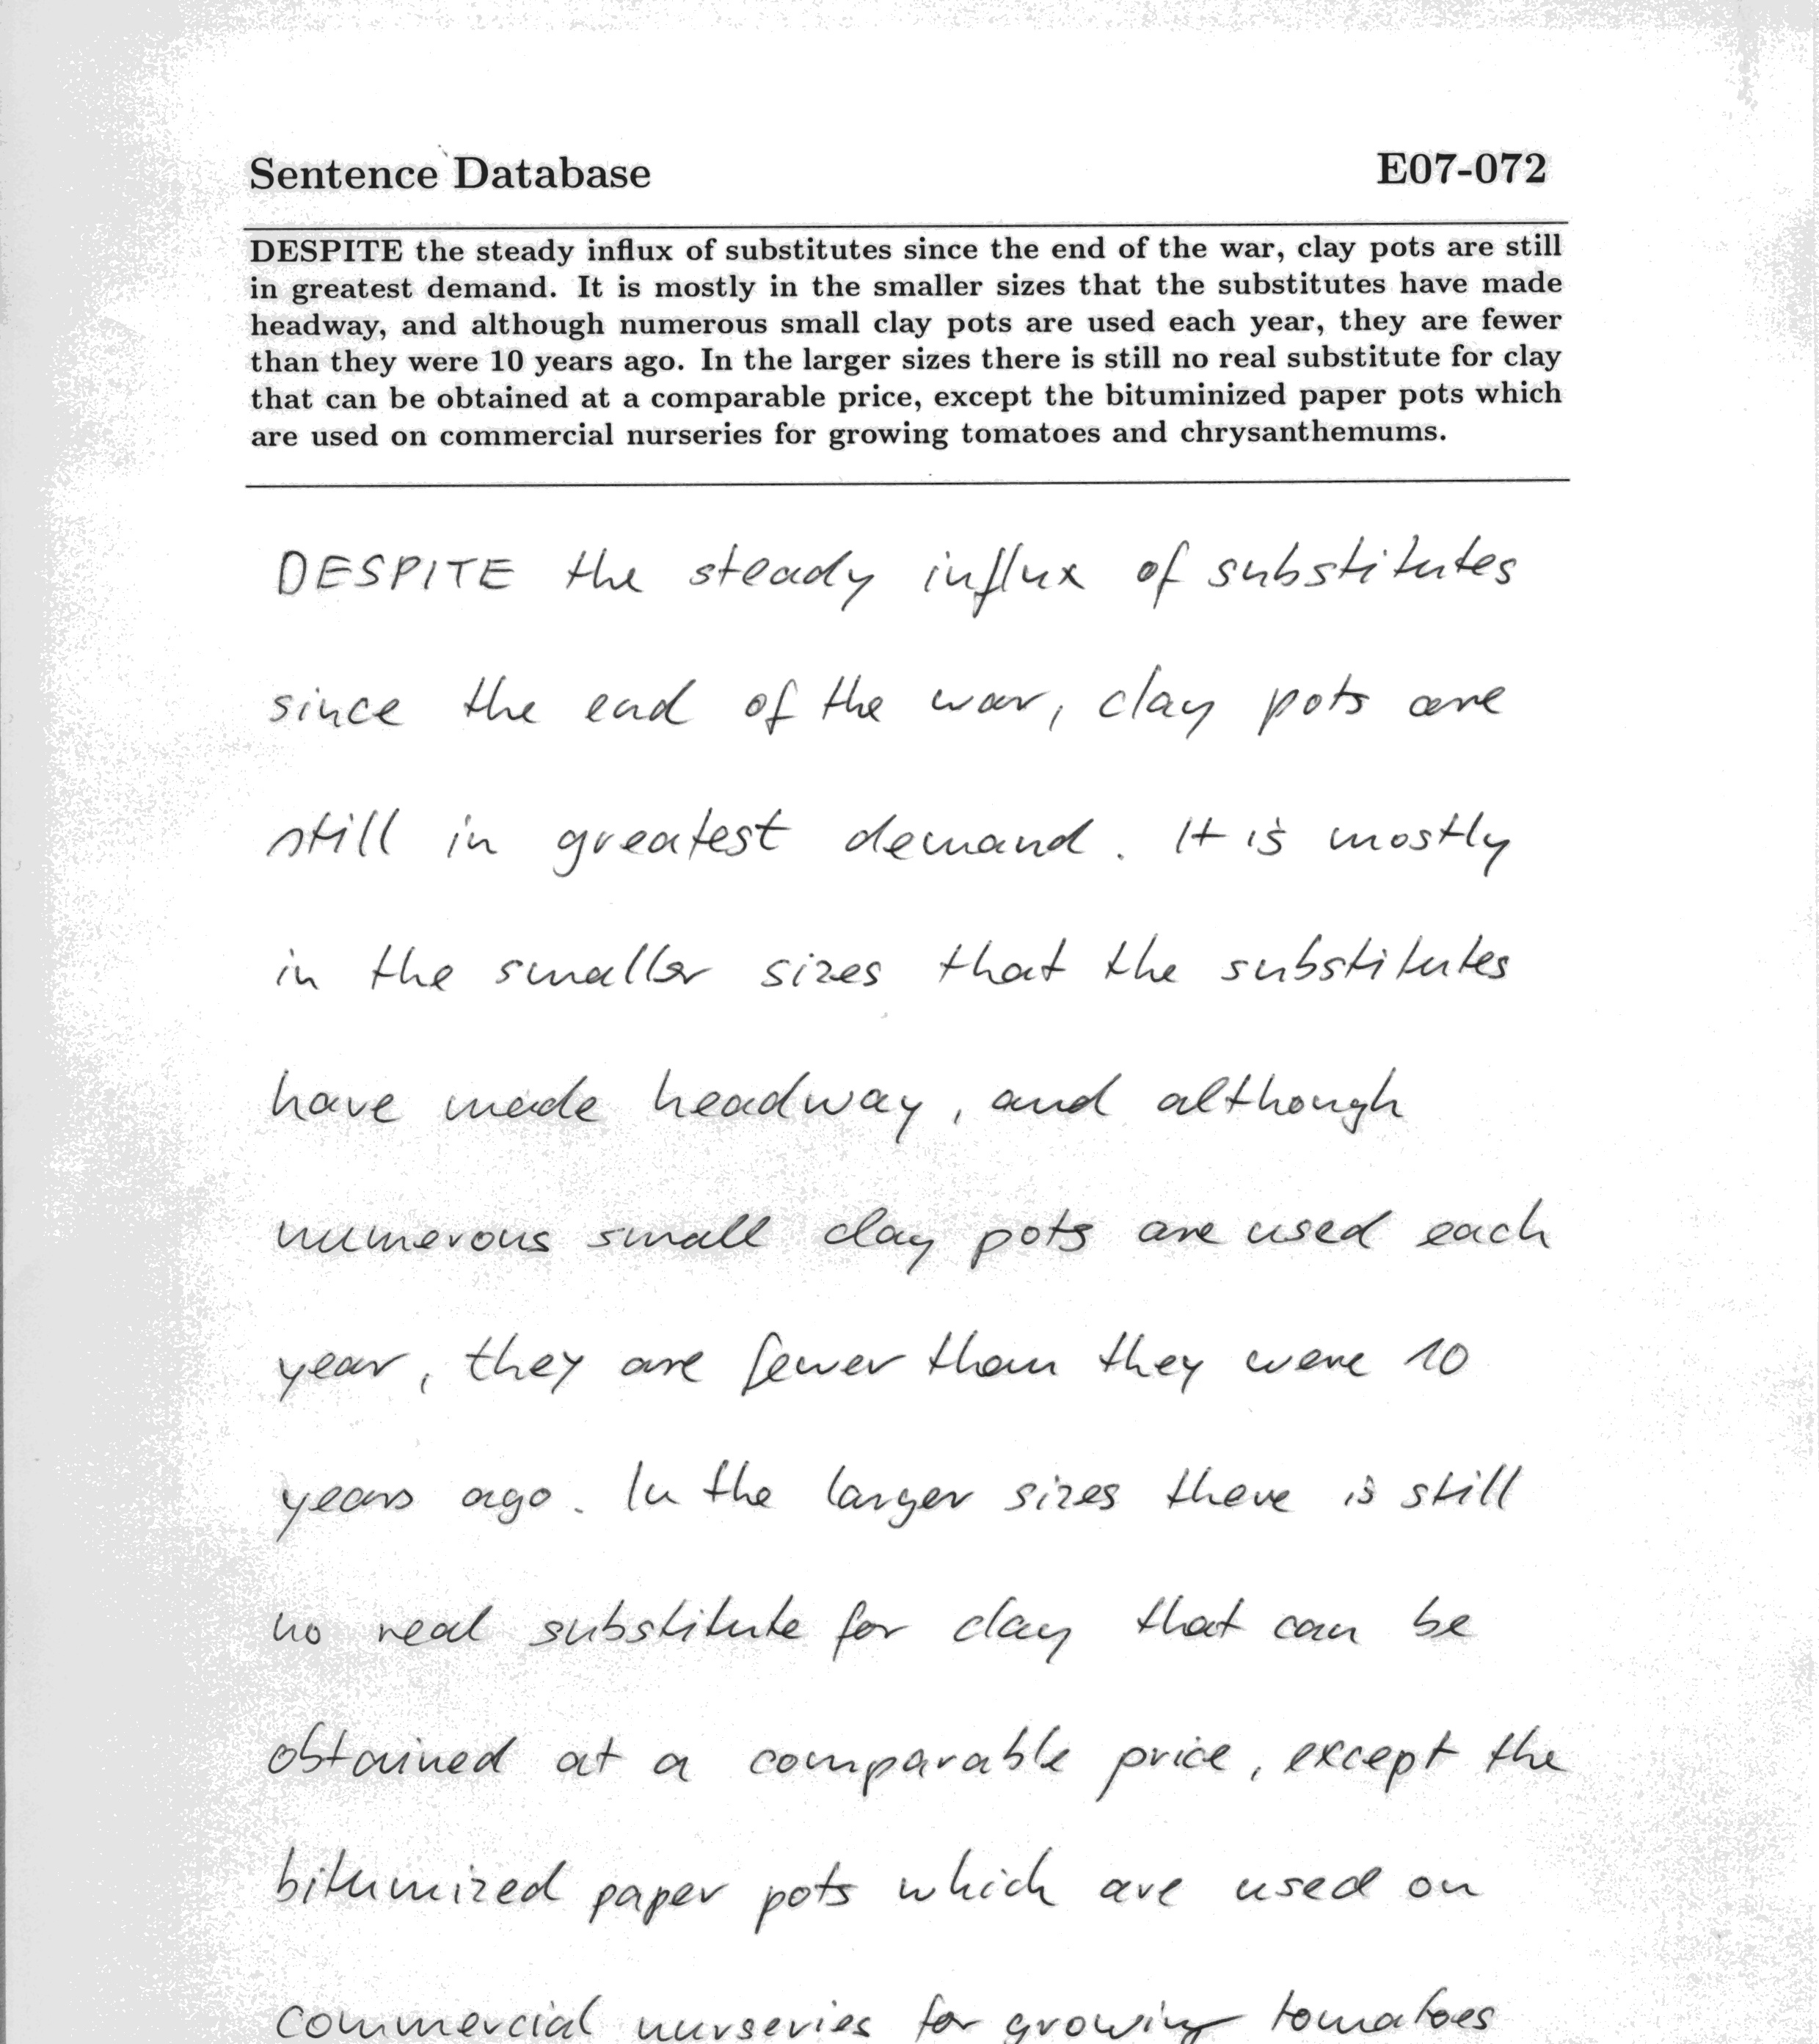 Sentence Database E07-072
DESPITE the steady influx of substitutes since the end of the war, clay pots are still
in greatest demand. It is mostly in the smaller sizes that the substitutes have made
headway, and although numerous small clay pots are used each year, they are fewer
than they were 10 years ago. In the larger sizes there is still no real substitute for clay
that can be obtained at a comparable price, except the bituminized paper pots which
are used on commercial nurseries for growing tomatoes and chrysanthemums.
DESPITE the steady influx of substitutes
since the end of the war, clay pots are
still in greatest demand. It is mostly
in the smaller sizes that the substitutes
have made headway, and although
numerous small clay pots are used each
year, they are fewer than they were 10
years ago. In the larger sizes there is still
no real substitute for clay that can be
obtained at a comparable price, except the
bitumized paper pots which are used on
commercial nurseries for growing tomatoes